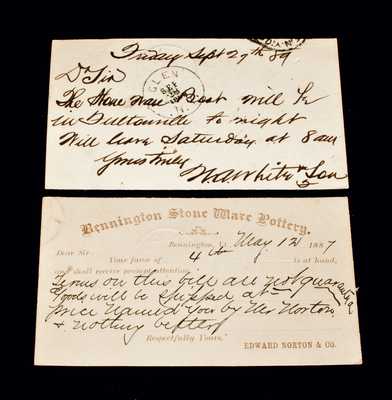 Friday Sept 27th 89
GLEN
N.Y.
Dr Sir
The Stone ware Boat will be
in Fultonville to night
Will leave Saturday at 8 am
Yours truly
N.A. White & Son
Bennington Stone Ware Pottery.
Bennington, Vt. May 12 1887
Dear Sir:
Your favor of 4th is at hand,
and shall receive prompt attention.
Terms on this bill are not guarantee
Goods will be shipped at
price Named you by Mr Norton
& nothing better
Respectfully Yours,
EDWARD NORTON & CO.